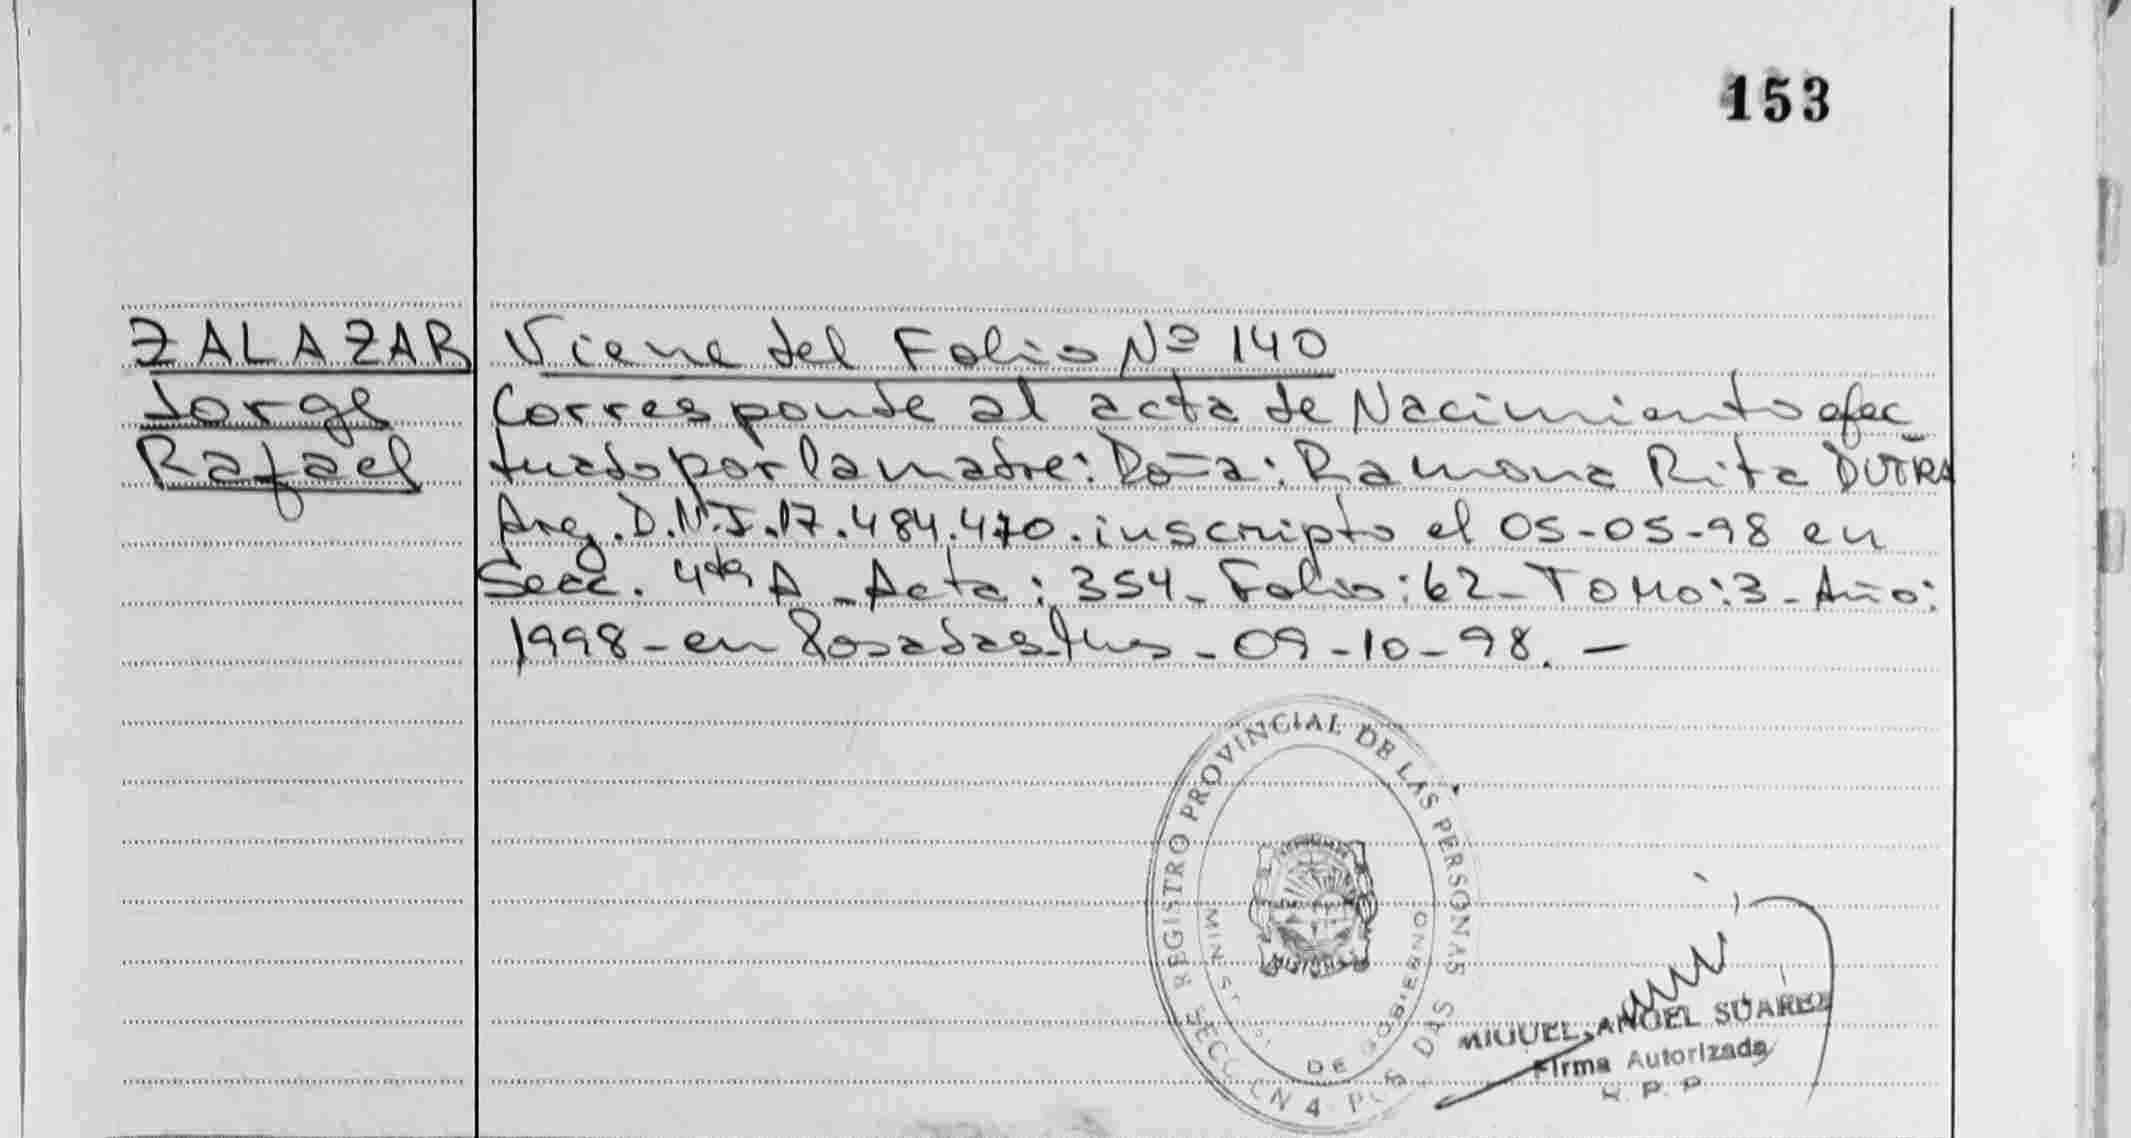 153
ZALAZAR
Jorge
Rafael
Viene del Folio Nº 140
Corresponde al acta de Nacimiento efec
tuado por la madre: Doña: Ramona Rita DUTRA
Arg. D.N.I. 17.484.470. inscripto el 05-05-98 en
Secc. 4ta A - Acta: 354 - Folio: 62 - Tomo: 3 - Año:
1998 - en Posadas Mnes - 09-10-98. -
REGISTRO PROVINCIAL DE LAS PERSONAS
DE GOBIERNO
MIGUEL ANGEL SUAREZ
Firma Autorizada
R. P. P.